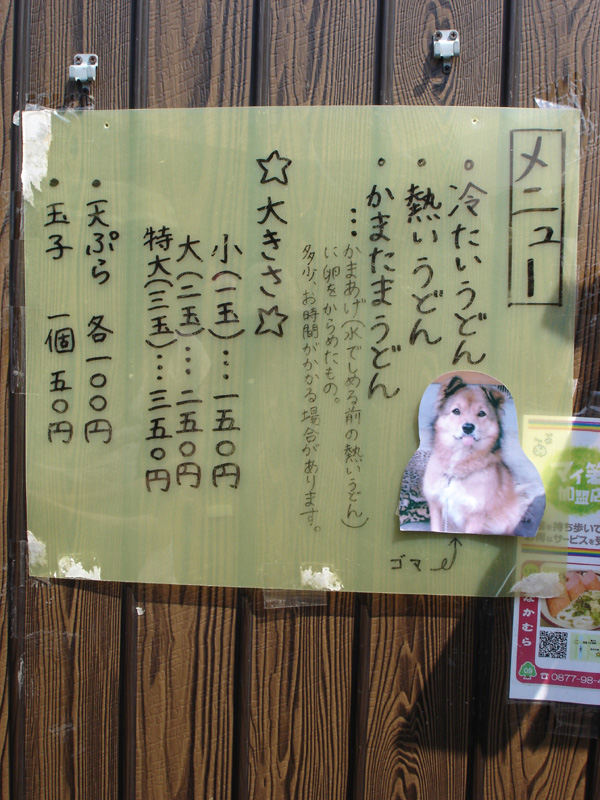 メニュー
・冷たいうどん
・熱いうどん
・かまたまうどん
…かまあげ(水でしめる前の熱いうどん)
に卵をからめたもの。
多少、お時間がかかる場合があります。
☆大きさ☆
小(一玉)…一五〇円
大(二玉)…二五〇円
特大(三玉)…三五〇円
・天ぷら 各一〇〇円
・玉子 一個 五〇円
ゴマ
マイ箸
加盟店
を持ち歩いて
なサービスを受
なかむら
0877-98-